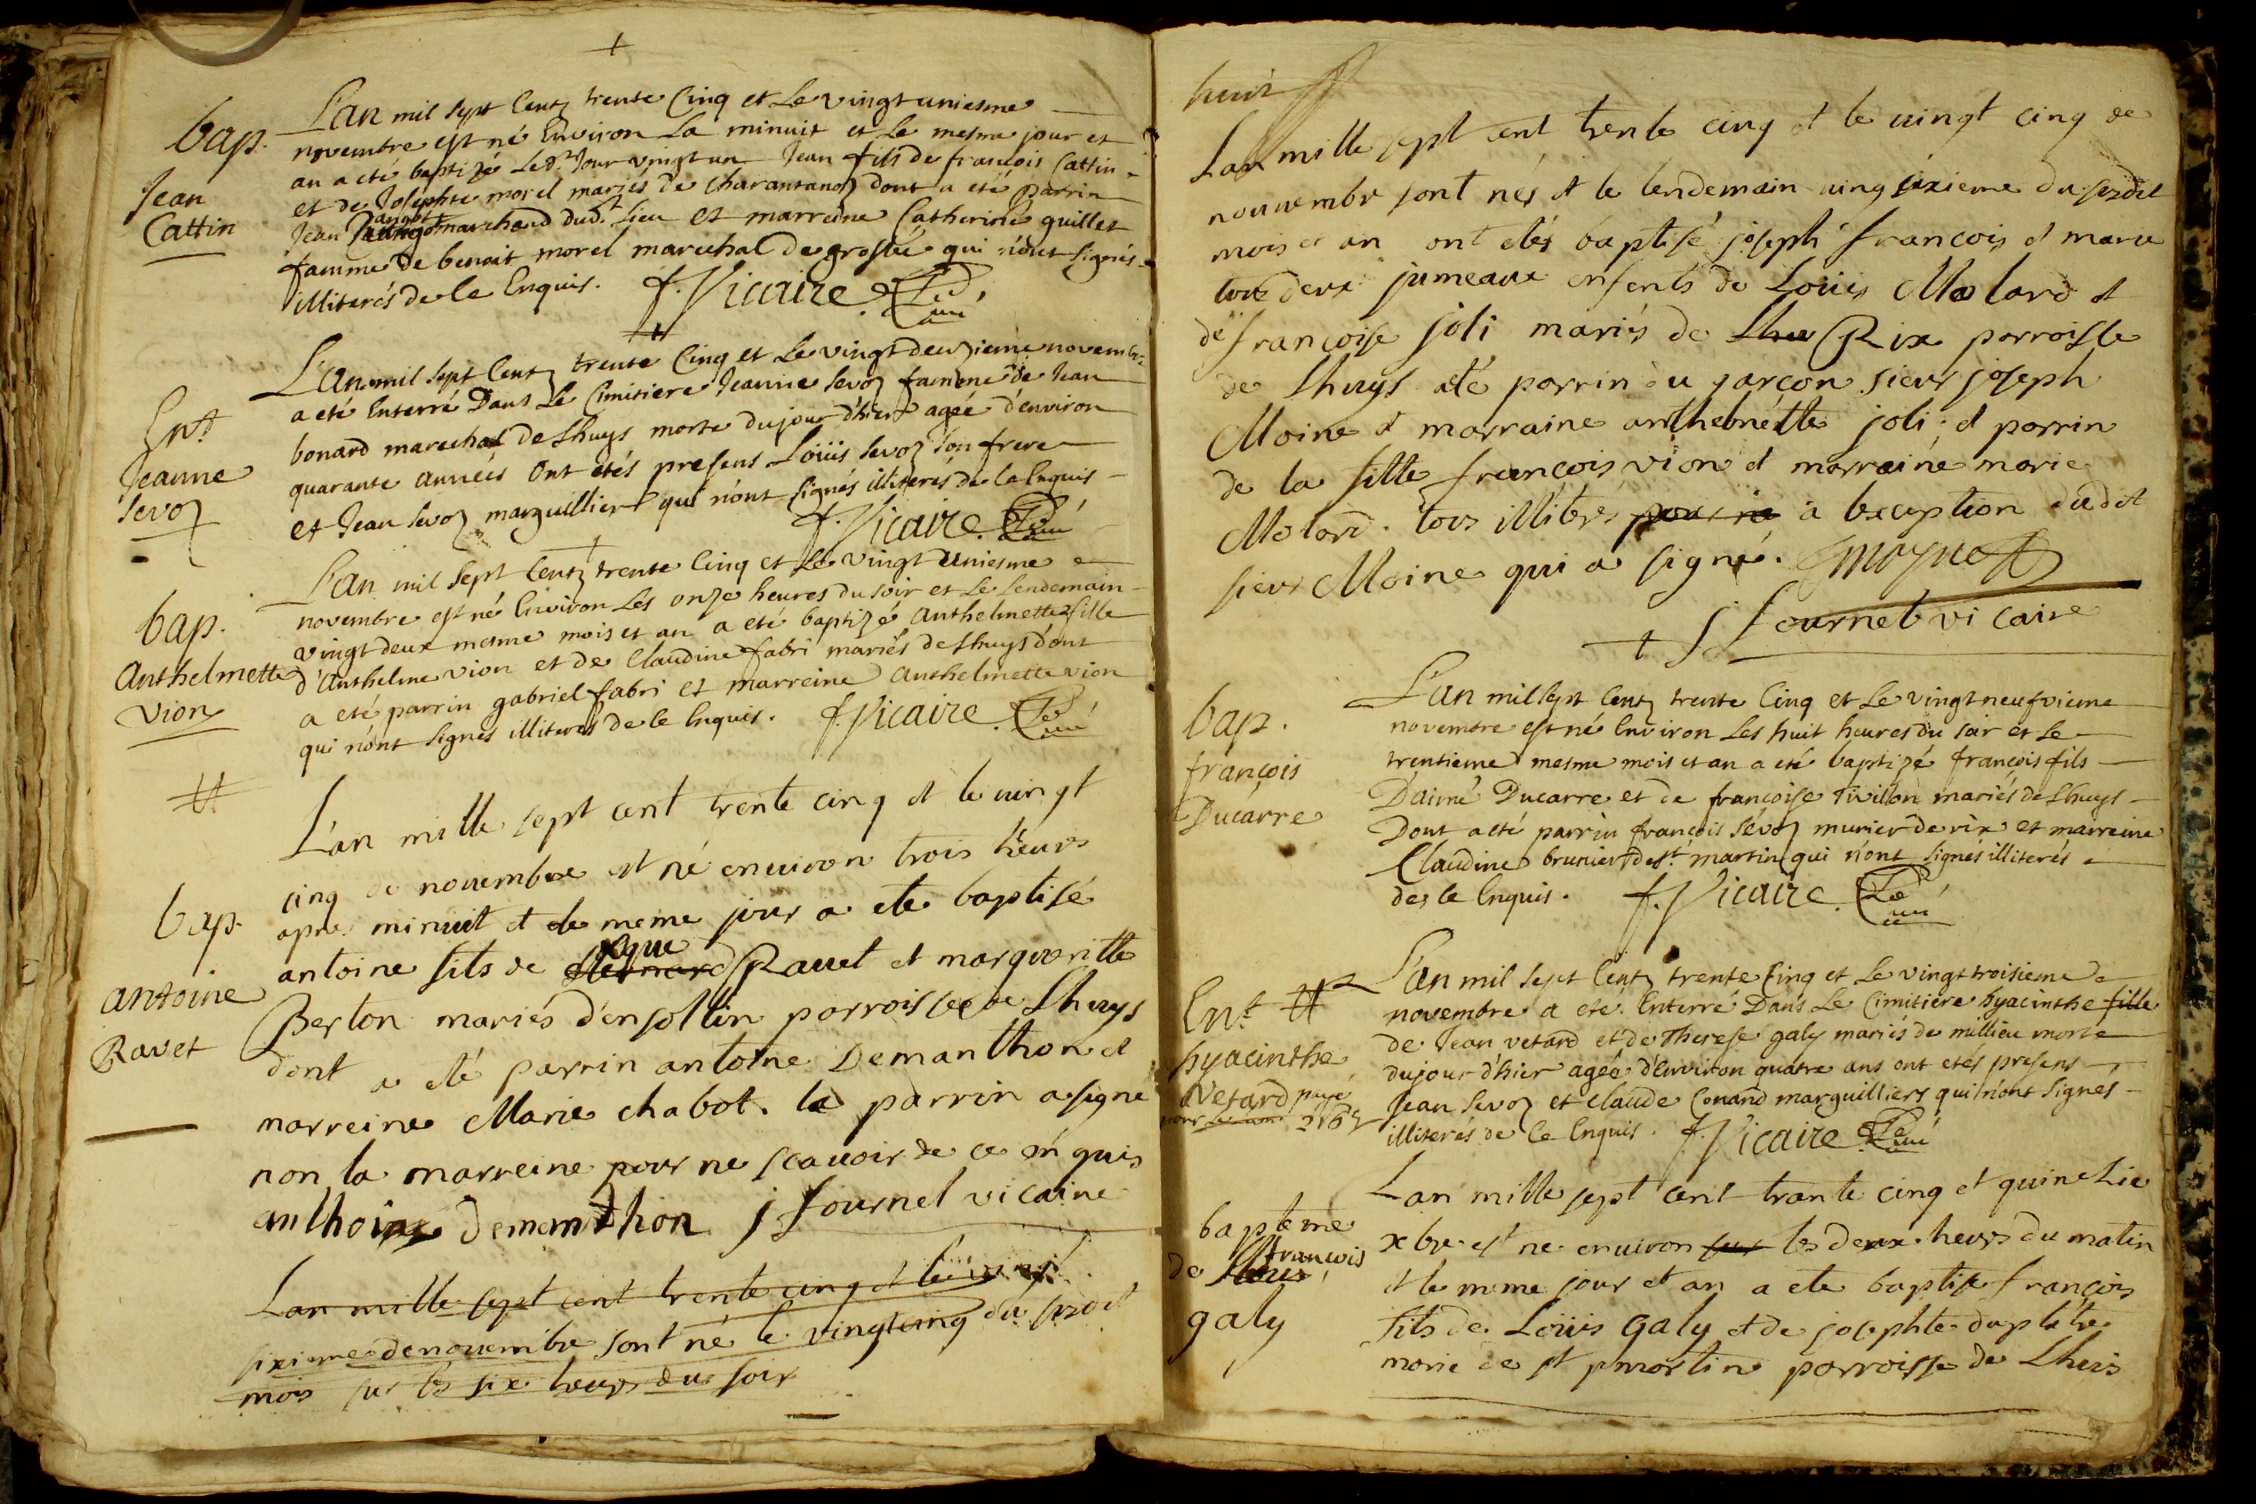 bap.
Jean
Cattin
L'an mil sept Centz trente Cinq et Le vingt uniesme
novembre est né Environ La minuit et Le mesme jour et
an a eté baptizé Led.t Jour vingt un Jean fils de françois Cattin
et de Josephte morel mariés de Charantanoz dont a eté parrin
Jean marchand dud.t Lieu et marreine Catherine quillet
famme de benoit morel marechal de groslée qui n'ont signés
illiterés de Ce Enquis. f. Vicaire Curé
Ent.
Jeanne
Sevoz
L'an mil sept Centz trente Cinq et Le vingt deuzieme novembre
a eté Enterré Dans Le Cimitiere Jeanne Sevoz famme de Jean
bonard marechal de Lhuys morte du jour d'hier agée d'environ
quarante années ont etés presens Loüis Sevoz son frere
et Jean Sevoz marguillier qui n'ont signés illiterés de Ce Enquis
f. Vicaire Curé
bap.
Anthelmette
Vion
L'an mil sept Centz trente Cinq et Le vingt uniesme
novembre est né Environ Les onze heures du soir et Le Lendemain
vingt deux mesme mois et an a eté baptizé Anthelmette fille
d'Anthelme vion et de Claudine fabri mariés de Lhuys dont
a eté parrin gabriel fabri et marreine Anthelmette vion
qui n'ont signés illiterés de Ce Enquis. f. Vicaire Curé
bap.
antoine
Ravet
L'an mille sept cent trente cinq et le vingt
cinq de novembre est né environ trois heures
apres minuit et le meme jour a ete baptisé
antoine fils de Ravet et margueritte
Berton mariés d'ensoltin parroisse de Lhuys
dont a eté parrin antoine Demanthon et
marreine Marie chabot. le parrin a signé
non la marreine pour ne scavoir de ce enquis
anthoine demanthon J fournel vicaire
Lan mille sept cent trente cinq et le vingt
sixieme de novembre sont né le vingt cinq du susdit
mois sur les six heures du soir
huit
Lan mille sept cent trente cinq et le vingt cinq de
novembre sont nés et le lendemain ving sixieme du susdit
mois et an ont etés baptisé joseph françois et marie
tous deux jumeaux enfents de Loüis Molard et
de françoise joli mariés de Lhu Rix parroisse
de Lhuys eté parrin du garçon sieur joseph
Moine et marraine anthelmette joli et parrin
de la fille françois vion et marraine marie
Molard. tous illitérés pour ne a lexception dudit
sieur Moine qui a signé. Moyne
J fournel vicaire
bap.
françois
Ducarre
L'an mil sept Centz trente Cinq et Le vingt neufvieme
novembre est né Environ Les huit heures du soir et Le
trentieme mesme mois et an a eté baptizé françois fils
D'aimé Ducarre et de françoise Tivillon mariés de Lhuys
Dont a eté parrin françois Sévoz munier de rix et marreine
Claudine brunier de st. martin qui n'ont signés illiterés
de Ce Enquis. f. Vicaire Curé
Ent.
hyacinthe
Vetard payé
L'an mil sept Centz trente Cinq et Le vingt troisieme
novembre a eté Enterré Dans Le Cimitiere hyacinthe fille
de Jean vetard et de Therese galy mariés de millieu morte
du jour d'hier agée d'Environ quatre ans ont etés presens
Jean Sevoz et Claude Conand marguilliers qui n'ont signés
illiterés de Ce Enquis. f. Vicaire Curé
bapteme
de françois
galy
Lan mille sept cent trante cinq et quinesie
xbre est ne environ sur les deux heurs du matin
et le meme jour et an a ete baptise françois
fils de Loüis Galy et de josephte duplatre
marie de st martin parroisse de Lhuis